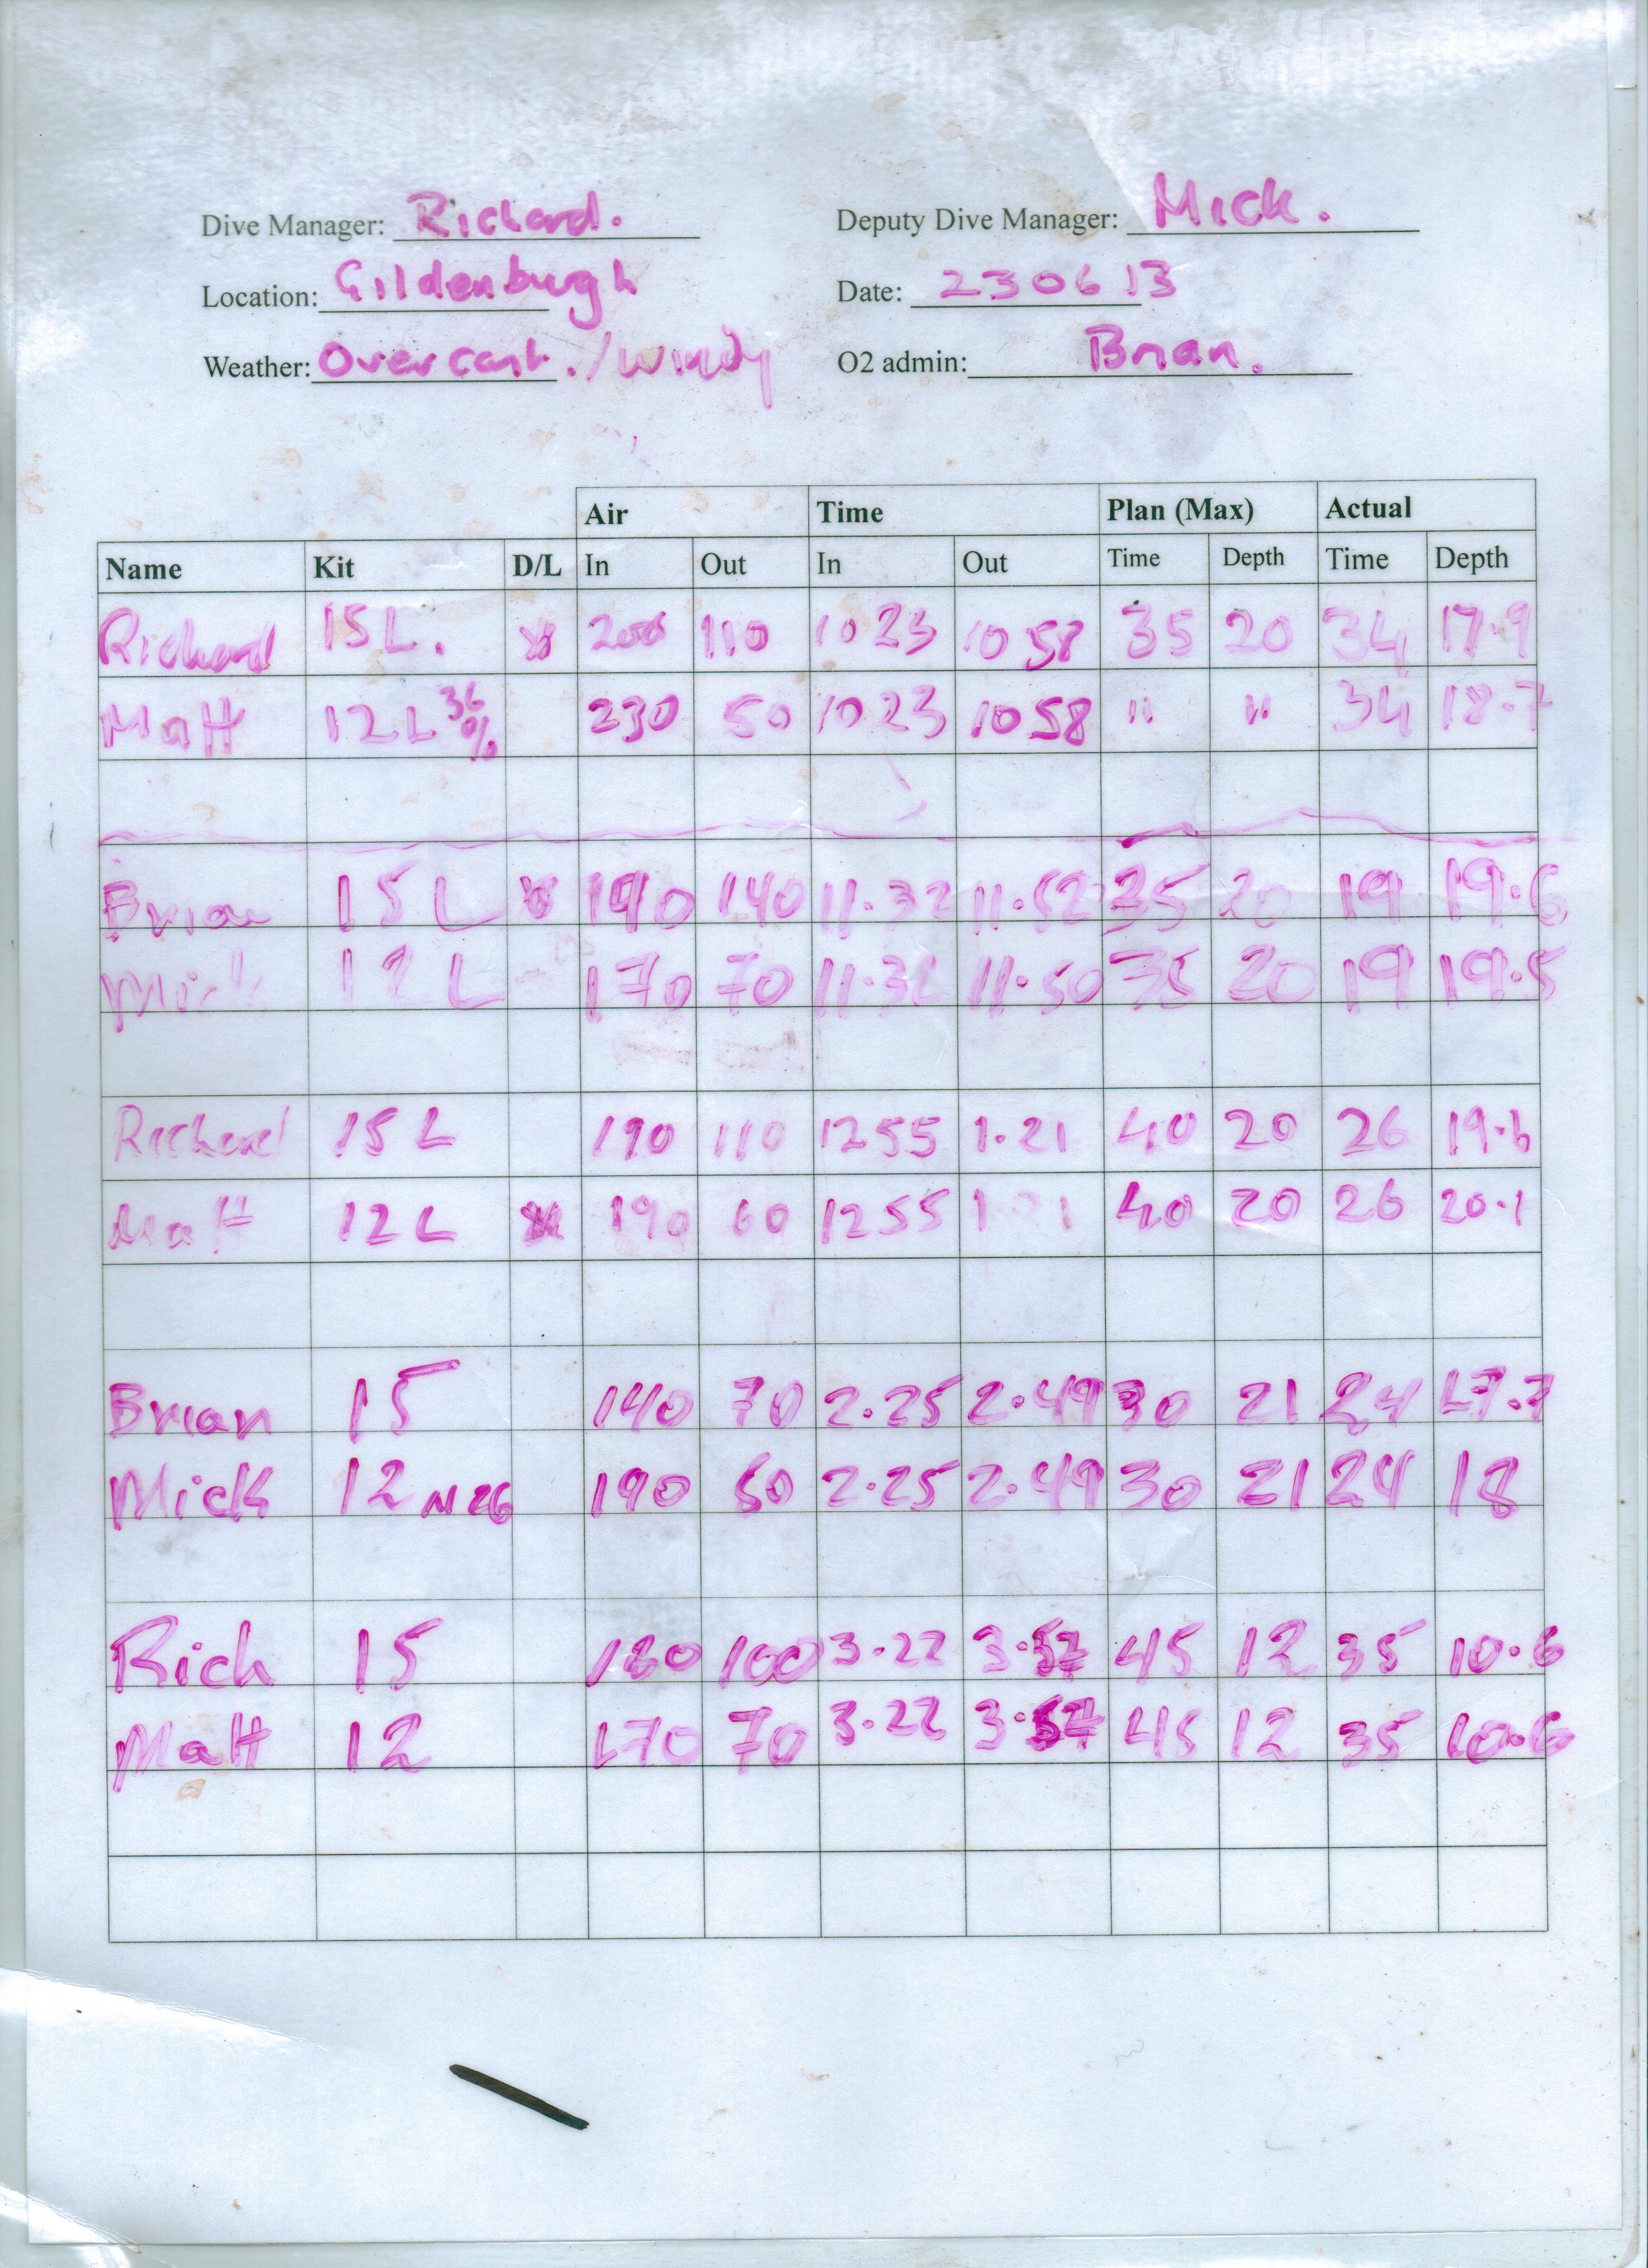 Dive Manager: Richard. Deputy Dive Manager: Mick.
Location: Gildenburgh Date: 230613
Weather: Overcast. / Windy O2 admin: Brian.
Air Time Plan (Max) Actual
Name Kit D/L In Out In Out Time Depth Time Depth
Richard 15L. 200 110 1023 1058 35 20 34 17.9
Matt 12L 36% 230 50 1023 1058 " " 34 18.7
Brian 15L 190 140 11.32 11.52 35 20 19 19.6
Mick 12L 170 70 11.32 11.50 35 20 19 19.5
Richard 15L 190 110 1255 1.21 40 20 26 19.6
Matt 12L 190 60 1255 40 20 26 20.1
Brian 15 140 70 2.25 2.49 30 21 24 17.7
Mick 12 N26 190 2.25 2.49 30 21 24 18
Rich 15 180 100 3.22 3.57 45 12 35 10.6
Matt 12 170 70 3.22 3.57 45 12 35 10.6